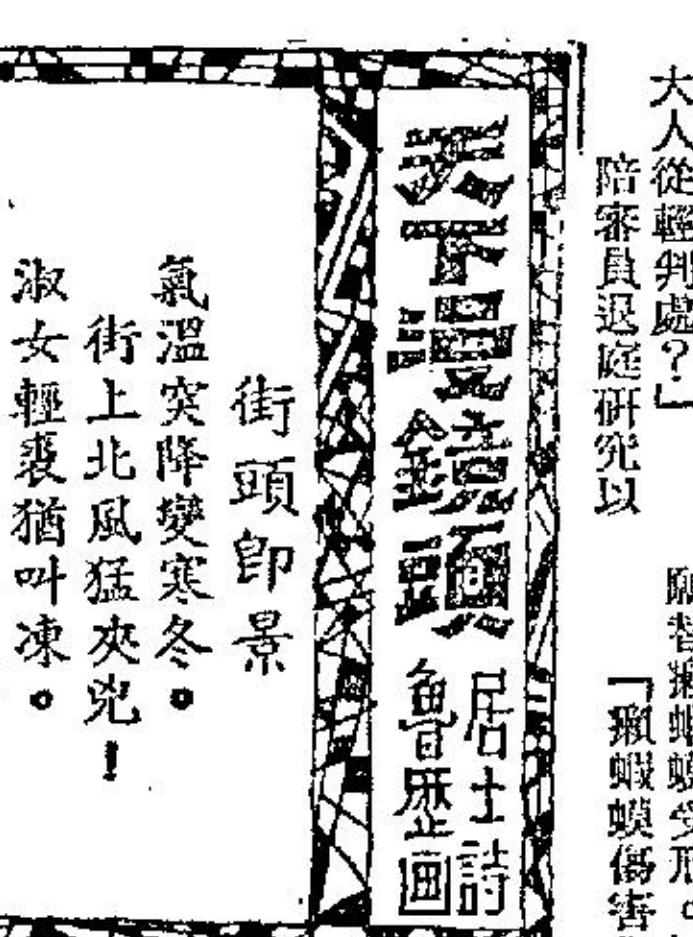 大人從輕判處？」
陪審員退庭研究以
願替癩蝦蟆受刑。
「癩蝦蟆傷害
天下漫鏡頭
居士詩
魯歷画
街頭即景
氣溫突降變寒冬。
街上北風猛夾兇！
淑女輕裘猶叫凍。